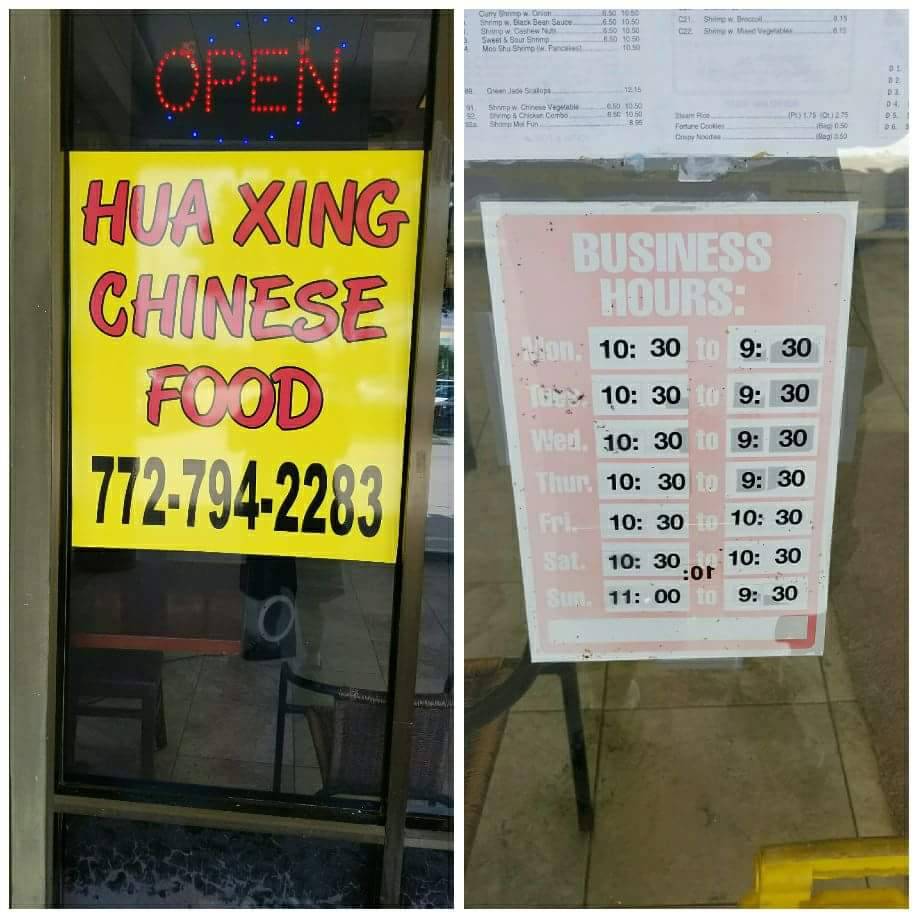 OPEN
HUA XING
CHINESE
FOOD
772-794-2283
Curry Shrimp w. Onion 6.50 10.50
Shrimp w. Black Bean Sauce 6.50 10.50
Shrimp w. Cashew Nuts 6.50 10.50
Sweet & Sour Shrimp 6.50 10.50
Moo Shu Shrimp (w. Pancakes) 10.50
Green Jade Scallops 12.15
91. Shrimp w. Chinese Vegetable 6.50 10.50
92. Shrimp & Chicken Combo 6.50 10.50
Shrimp Mei Fun 8.95
C21. Shrimp w. Broccoli 8.15
C22. Shrimp w. Mixed Vegetables 8.15
Steam Rice (Pt.) 1.75 (Qt.) 2.75
Fortune Cookies (Bag) 0.50
Crispy Noodles (Bag) 0.50
D 1.
D 2.
D 3.
D 4.
D 5.
D 6.
BUSINESS
HOURS:
Mon. 10: 30 to 9: 30
Tues. 10: 30 to 9: 30
Wed. 10: 30 to 9: 30
Thur. 10: 30 to 9: 30
Fri. 10: 30 to 10: 30
Sat. 10: 30 to 10: 30
10:
Sun. 11: 00 to 9: 30